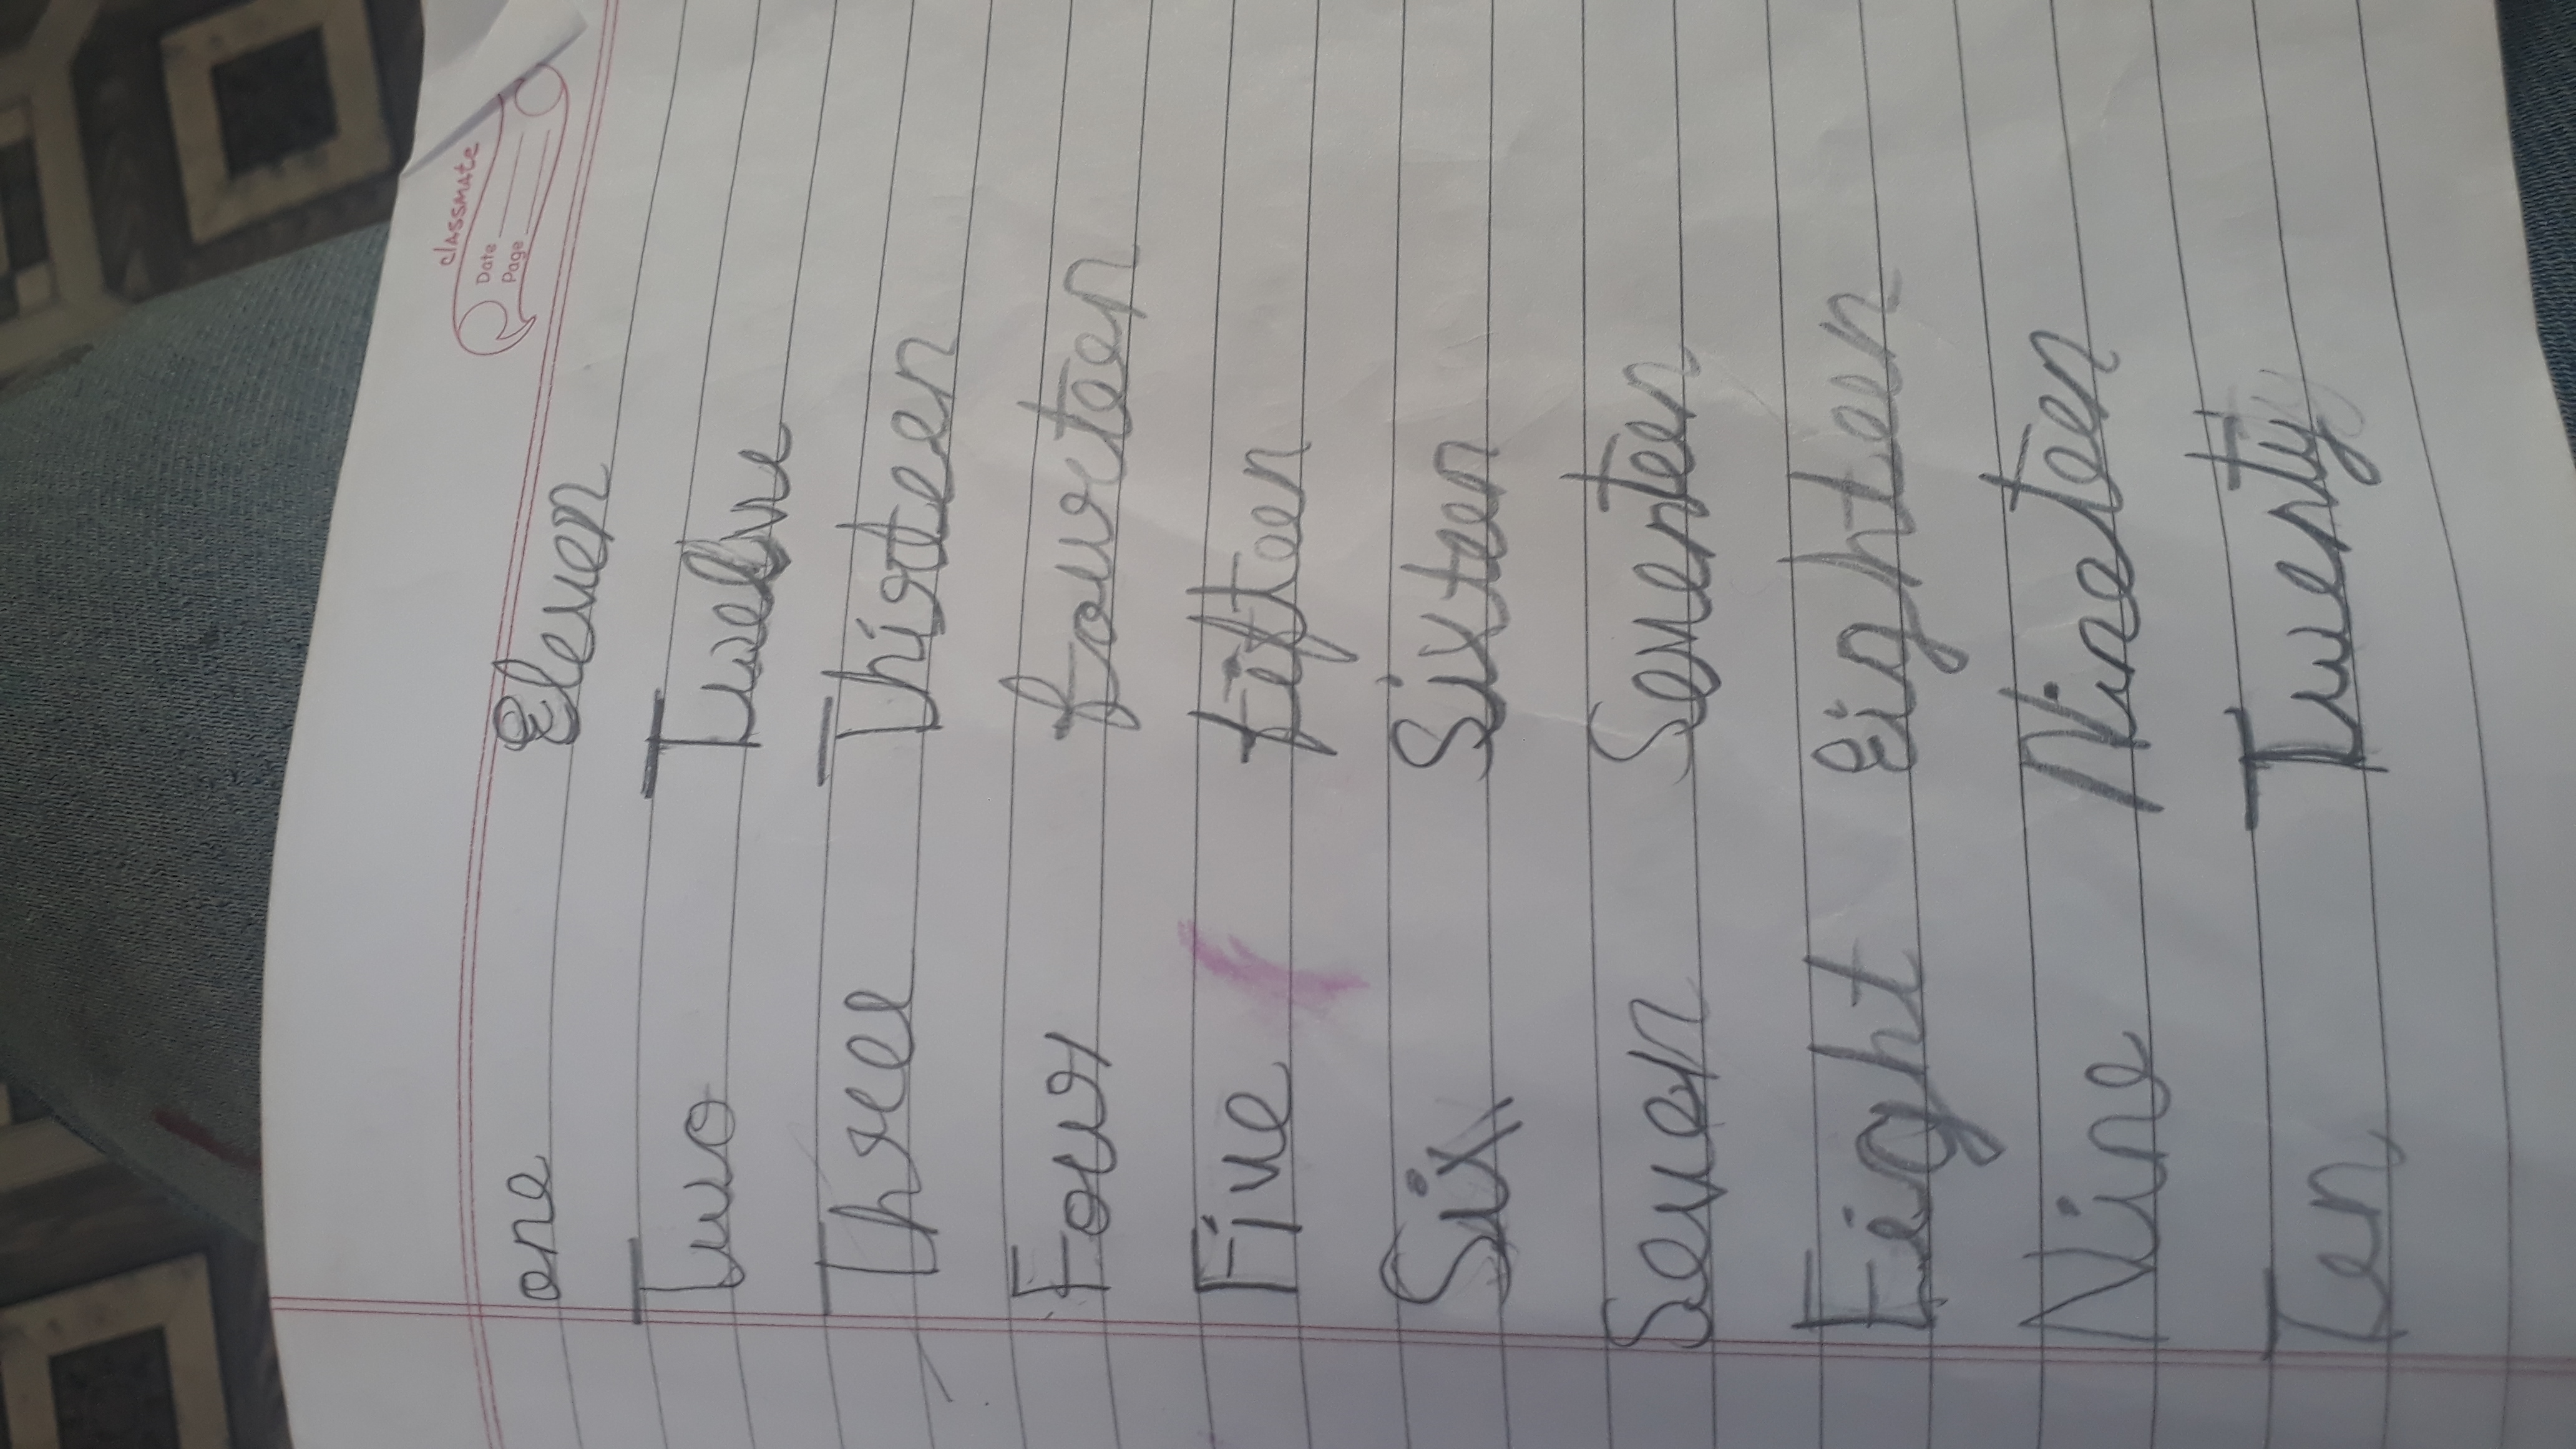 classmate
Date
Page
one Eleven
Two Twelve
Three Thirteen
Four fourteen
Five fifteen
Six Sixteen
Seven Seventeen
Eight Eighteen
Nine Nineteen
Ten Twenty